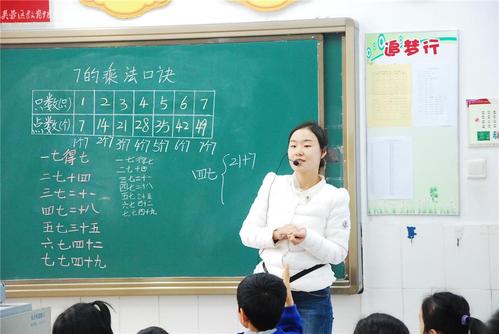 吴兴区教育
追梦行
7的乘法口诀
只数(只) 1 2 3 4 5 6 7
点数(个) 7 14 21 28 35 42 49
1个7 2个7 3个7 4个7 5个7 6个7 7个7
一七得七
二七十四
三七二十一
四七二十八
五七三十五
六七四十二
七七四十九
一七得七
二七十四
三七二十一
四七二十八
五七三十五
六七四十二
七七四十九
四七 { 21+7